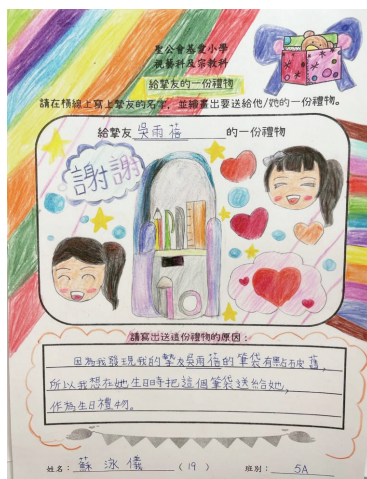 聖公會基愛小學
視藝科及宗教科
給摯友的一份禮物
請在橫線上寫上摯友的名字，並繪畫出要送給他/她的一份禮物。
給摯友 吳雨蓓 的一份禮物
謝謝
請寫出送這份禮物的原因：
因為我發現我的摯友吳雨蓓的筆袋有點破舊，
所以我想在她生日時把這個筆袋送給她，
作為生日禮物。
姓名：蘇泳儀（19） 班別：5A